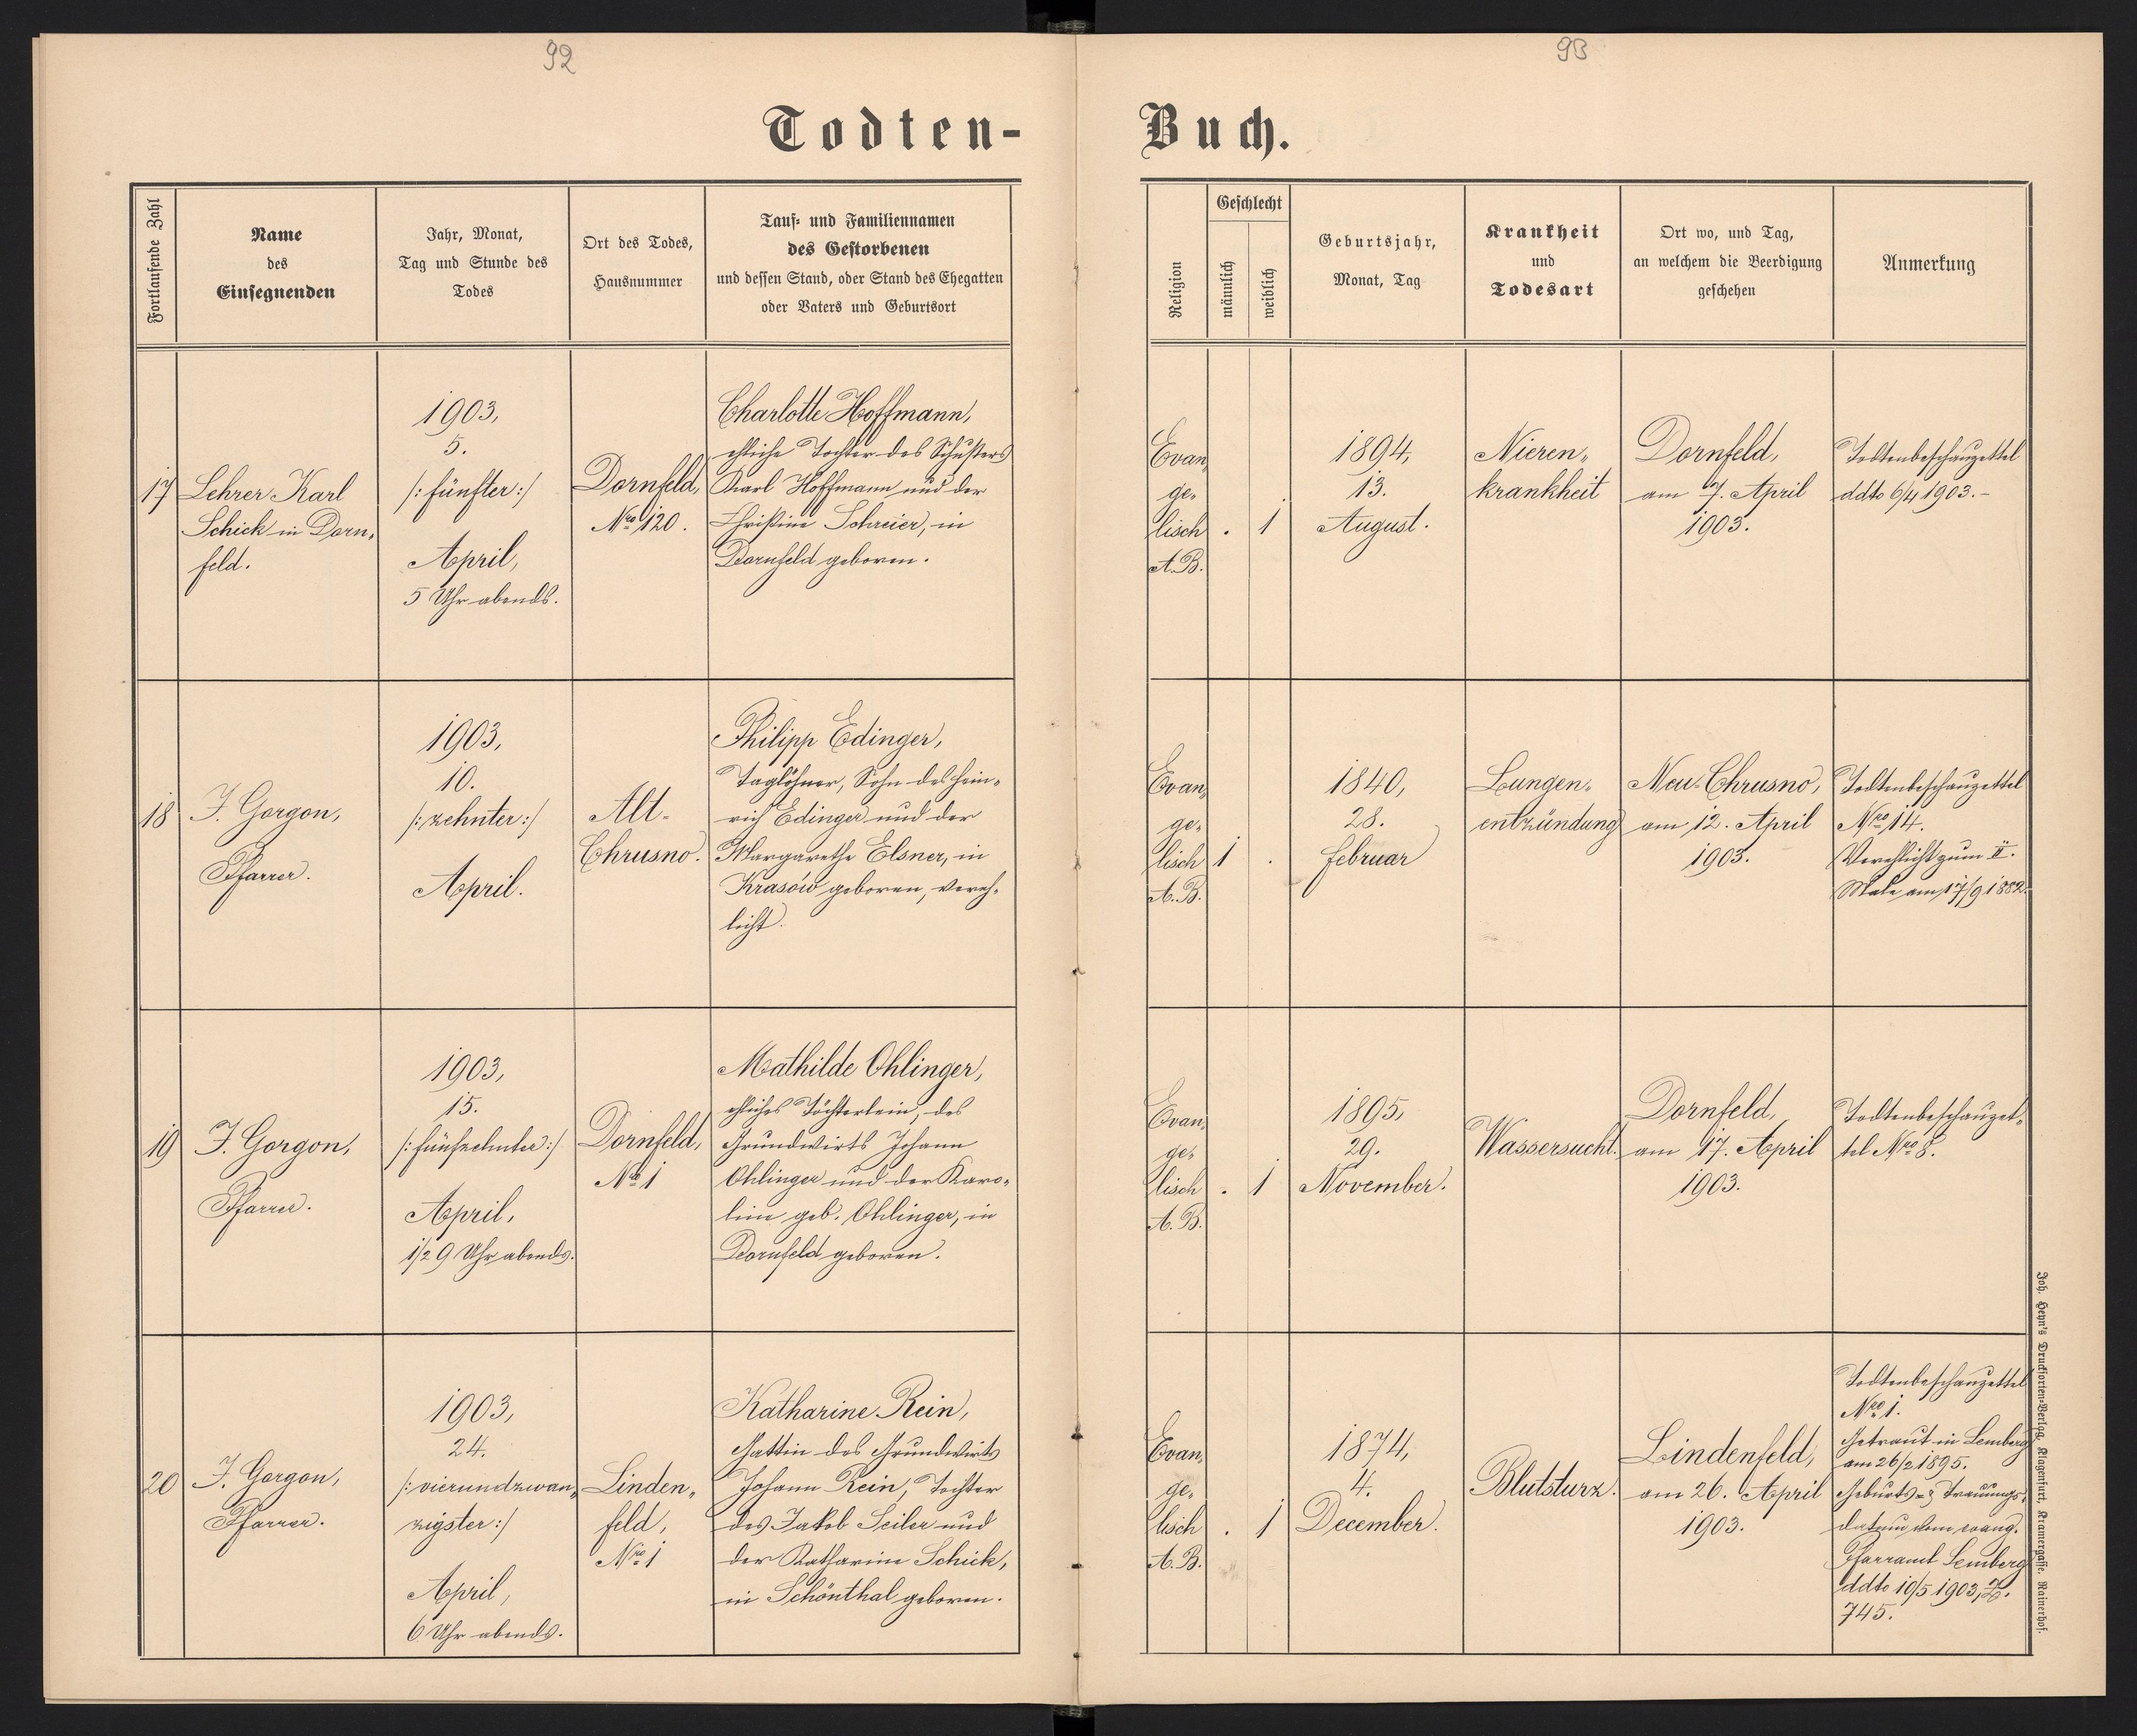 92
93
Todten-
Buch.
Fortlaufende Zahl
Name
des
Einsegnenden
Jahr, Monat,
Tag und Stunde des
Todes
Ort des Todes,
Hausnummer
Tauf- und Familiennamen
des Gestorbenen
und dessen Stand, oder Stand des Ehegatten
oder Vaters und Geburtsort
Religion
Geschlecht
männlich
weiblich
Geburtsjahr,
Monat, Tag
Krankheit
und
Todesart
Ort wo, und Tag,
an welchem die Beerdigung
geschehen
Anmerkung
17
Lehrer Karl
Schick in Dorn-
feld.
1903,
5.
/:fünfter:/
April,
5 Uhr abends.
Dornfeld,
Nro 120.
Charlotte Hoffmann,
ehliche Tochter des Schusters
Karl Hoffmann und der
Christine Schreier, in
Dornfeld geboren.
Evan-
ge-
lisch
A.B.
.
1
1894,
13.
August.
Nieren-
krankheit
Dornfeld,
am 7. April
1903.
Todtenbeschauzettel
ddto 6/4 1903.-
18
J. Gorgon,
Pfarrer.
1903,
10.
/:zehnter:/
April.
Alt-
Chrusno.
Philipp Edinger,
Taglöhner, Sohn des Hein-
rich Edinger und der
Margarethe Elsner, in
Krasów geboren, vereh-
licht.
Evan-
ge-
lisch
A.B.
1
.
1840,
28.
Februar
Lungen-
entzündung
Neu-Chrusno,
am 12. April
1903.
Todtenbeschauzettel
Nro 14.
Verehlicht zum II.
Male am 17/9 1882.
19
J. Gorgon,
Pfarrer.
1903,
15.
/:fünfzehnter:/
April,
1/2 9 Uhr abends.
Dornfeld,
Nro 1
Mathilde Ohlinger,
ehliches Töchterlein, des
Grundwirts Johann
Ohlinger und der Karo-
line geb. Ohlinger, in
Dornfeld geboren.
Evan-
ge-
lisch
A.B.
.
1
1895,
29.
November.
Wassersucht.
Dornfeld,
am 17. April
1903.
Todtenbeschauzet-
tel Nro 8.
20
J. Gorgon,
Pfarrer.
1903,
24.
/:vierundzwan-
zigster:/
April,
6 Uhr abends.
Linden-
feld,
Nro 1
Katharine Rein,
Gattin des Grundwirts
Johann Rein, Tochter
des Jakob Seiler und
der Katharine Schick,
in Schönthal geboren.
Evan-
ge-
lisch
A.B.
.
1
1874,
4.
December.
Blutsturz.
Lindenfeld,
am 26. April
1903.
Todtenbeschauzettel
Nro 1.
Getraut in Lemberg
am 26/2 1895.
Geburts- & Trauungs-
datum vom evang.
Pfarramt Lemberg
ddto 19/5 1903, Z.
745.
Joh. Heyn's Drucksorten-Verlag, Klagenfurt, Kramergasse, Rainerhof.